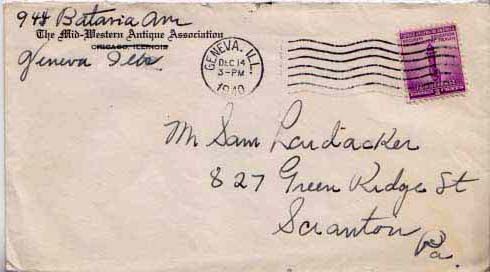 944 Batavia Ave
The Mid-Western Antique Association
CHICAGO, ILLINOIS
Geneva Ills
GENEVA, ILL.
DEC 14
3-PM
1940
Mr Sam Laidacker
827 Green Ridge St
Scranton
Pa.